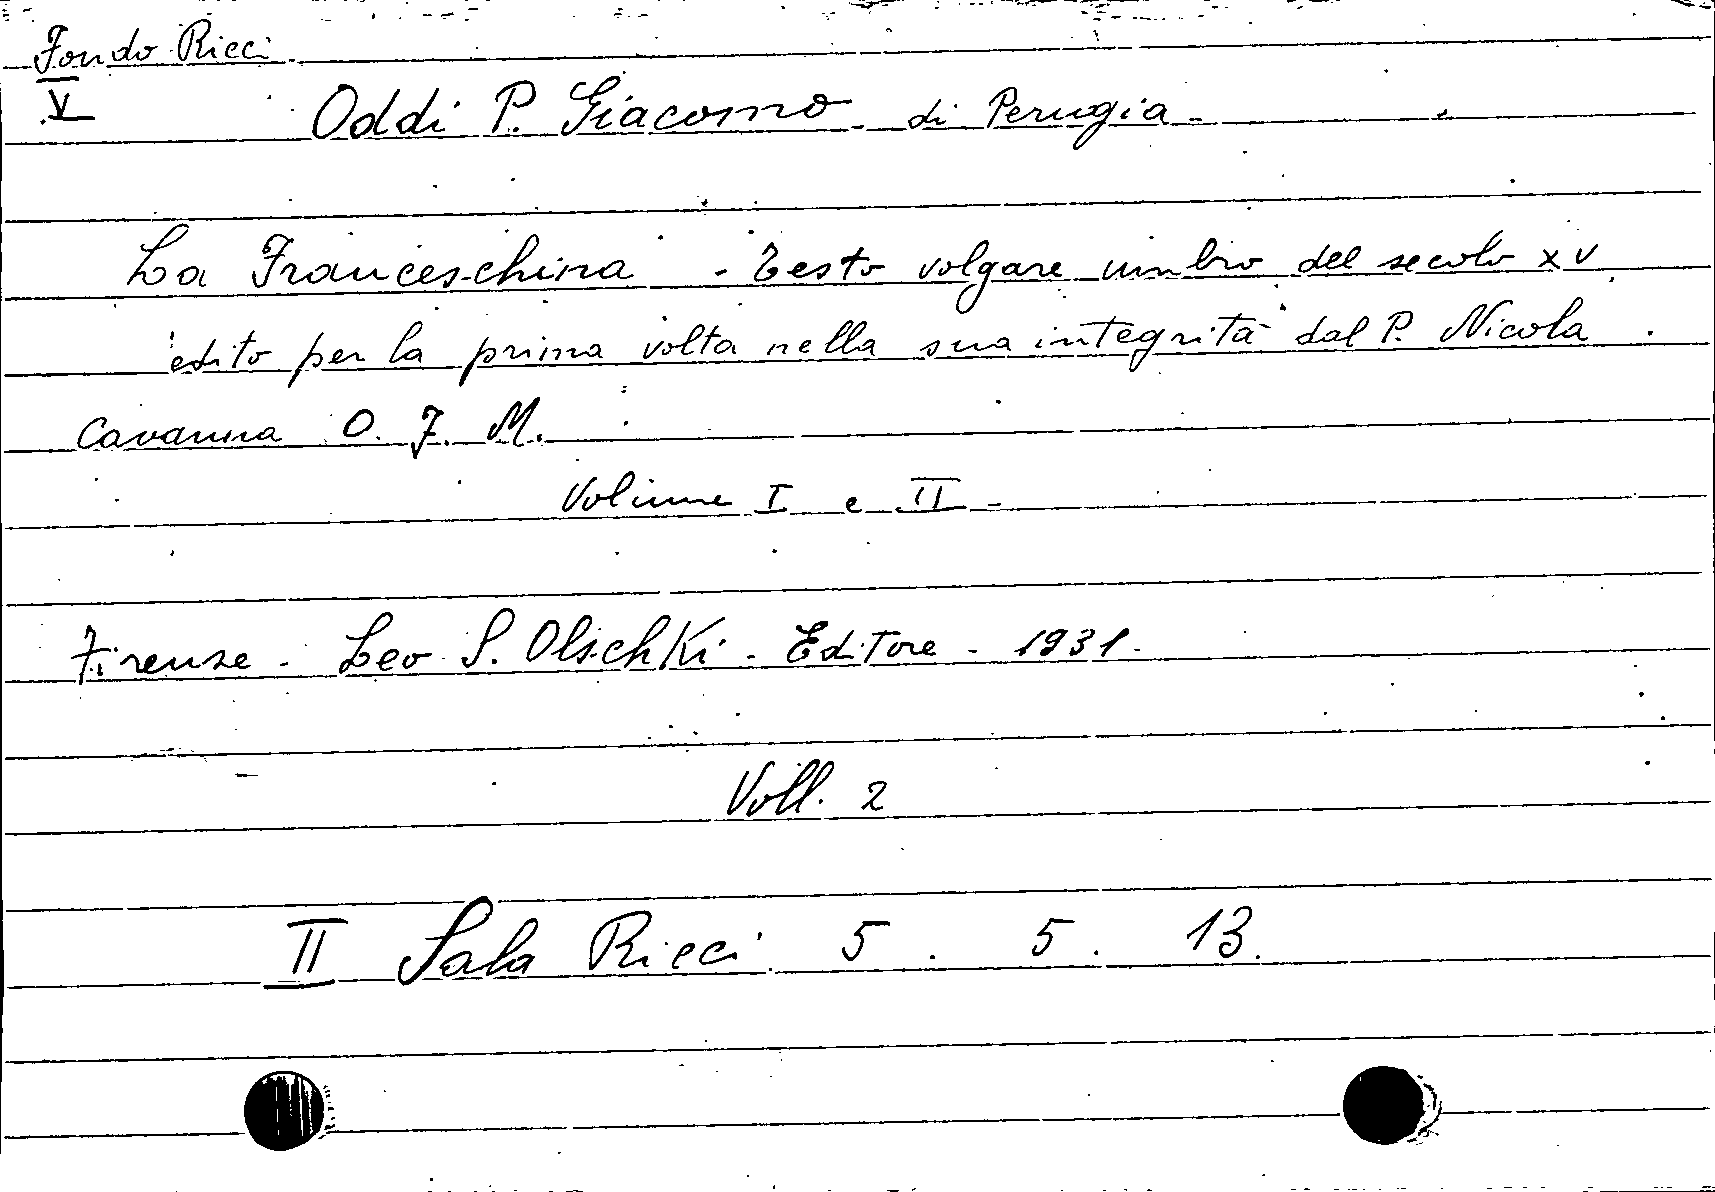 Fondo Ricci
V
Oddi P. Giacomo di Perugia -
La Franceschina - Testo volgare umbro del secolo XV
edito per la prima volta nella sua integrità dal P. Nicola
Cavanna O. F. M.
Volume I e II -
Firenze - Leo S. Olschki - Editore - 1931 -
Voll. 2
II Sala Ricci 5 . 5 . 13.